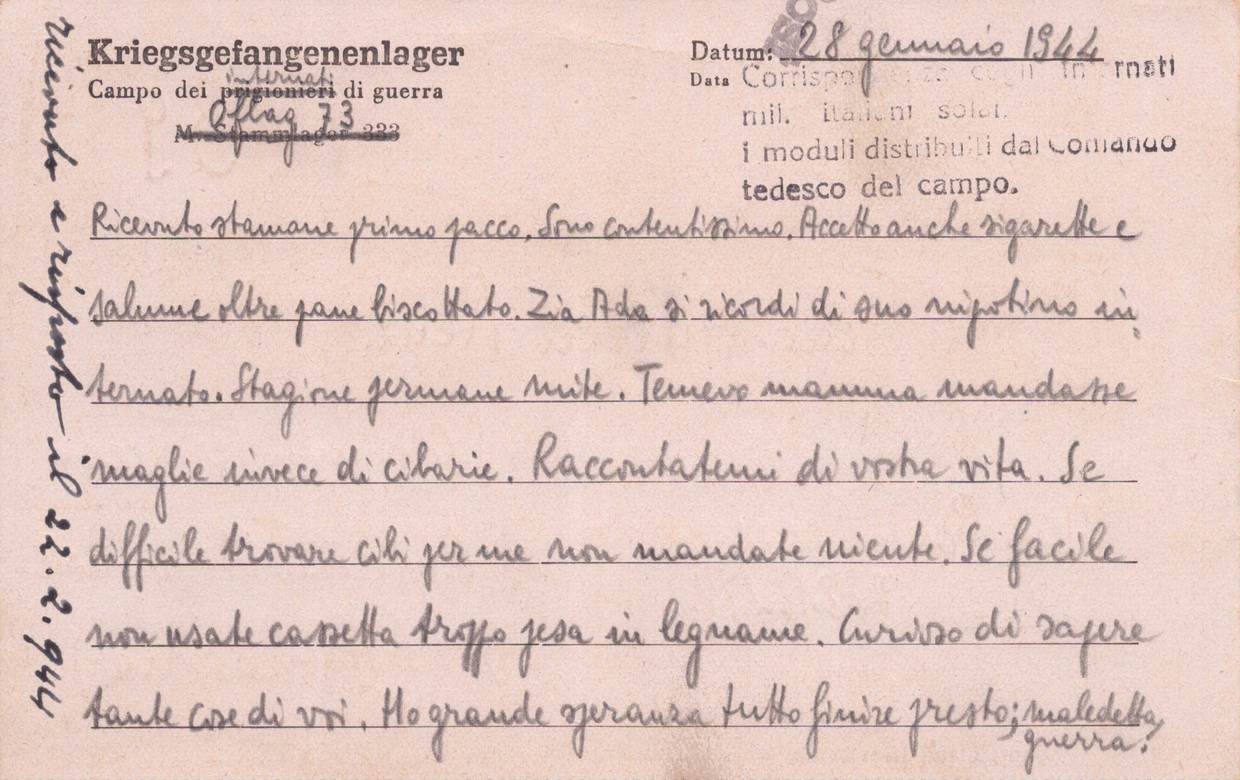 Kriegsgefangenenlager
Campo dei prigionieri di guerra
internati
Oflag 73
M.-Stammlager 333
Datum: 28 gennaio 1944
Data
Corrispo za cogli internati
mil. italiani solo
i moduli distribuiti dal Comando
tedesco del campo.
Ricevuto stamane primo pacco. Sono contentissimo. Accetto anche sigarette e
salume oltre pane biscottato. Zia Ada si ricordi di suo nipotino in=
ternato. Stagione permane mite. Temevo mamma mandasse
maglie invece di cibarie. Raccontatemi di vostra vita. Se
difficile trovare cibi per me non mandate niente. Se facile
non usate cassetta troppo pesa in legname. Curioso di sapere
tante cose di voi. Ho grande speranza tutto finire presto; maledetta
guerra!
ricevuto e risposto il 22.2.944